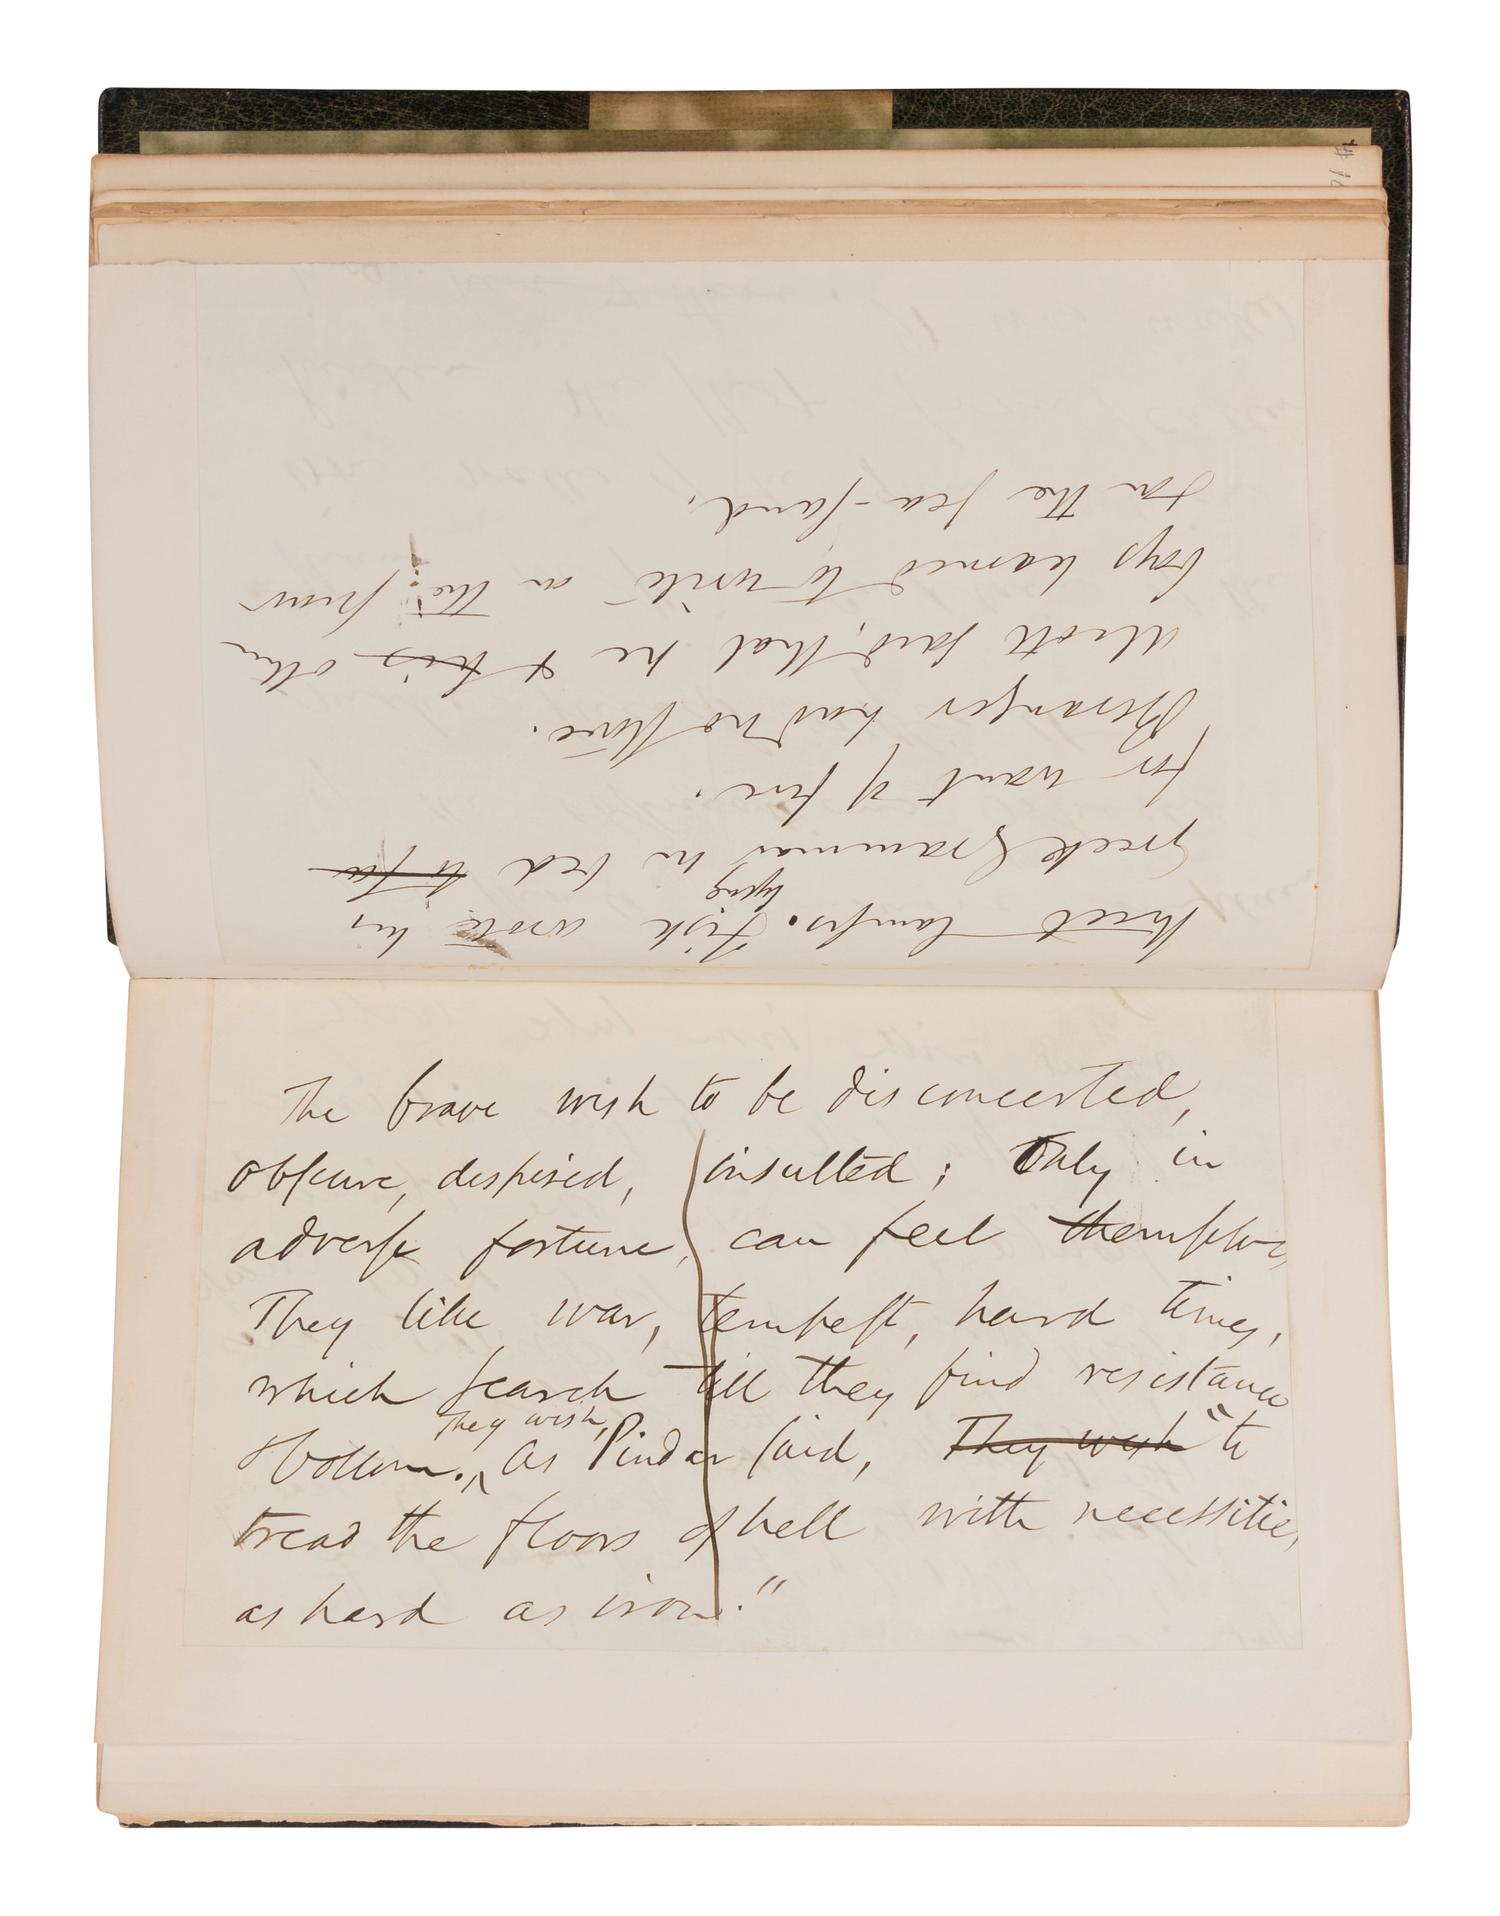 street lamps. Fisk wrote his
lying
Greek Grammar in bed to for
for want of fire.
Beranger had no stove.
Alcott said, that he & his other
boys learned to write on the snow
on the sea-sand.
The brave wish to be disconcerted,
obscure, despised, insulted; Only in
adverse fortune, can feel themselves
They like war, tempest, hard times,
which search till they find resistance
They wish,
& bottom. ‸ as Pindar said, They wish "to
tread the floors of hell with necessities
as hard as iron."